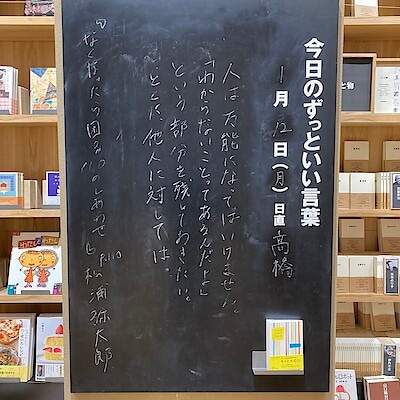 今日のずっといい言葉
1月12日(月)日直 高橋
人は万能になってはいけません。
「わからないことってあるんだよ」
という部分を残しておきたい。
とくに、他人に対しては。
『なくなったら困る100のしあわせ』P.110 松浦弥太郎